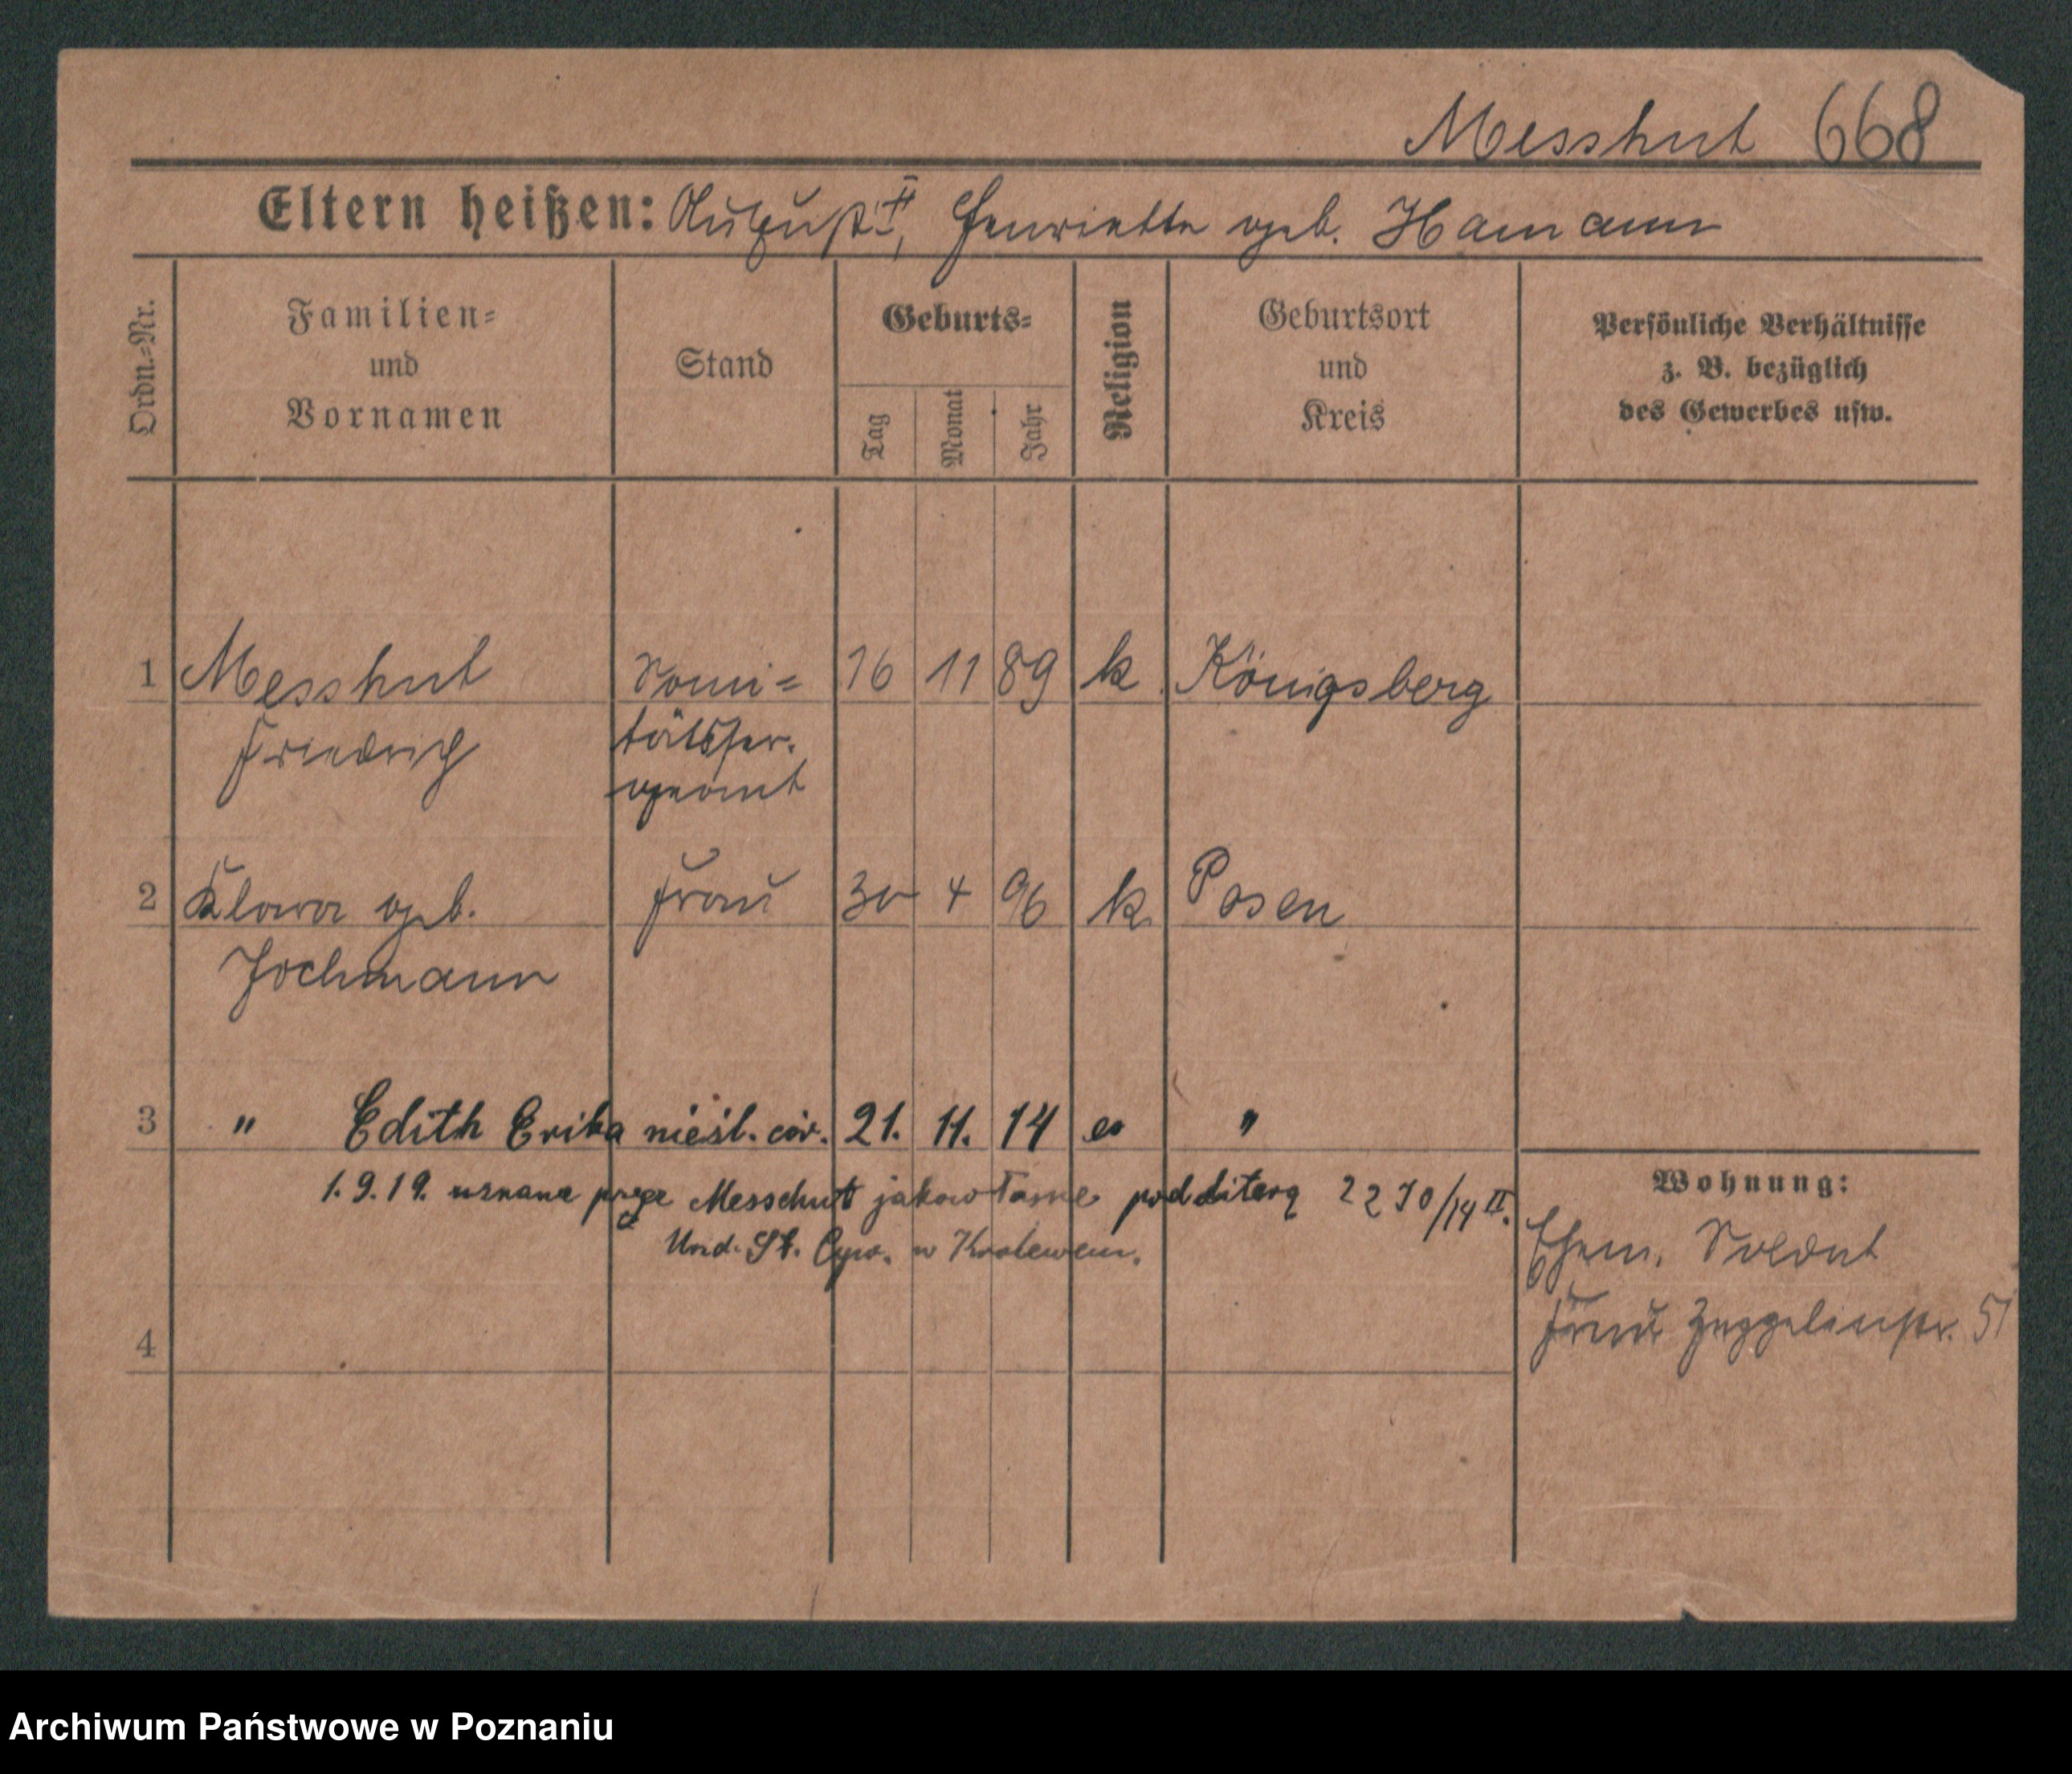 Messhut 668
Eltern heißen: August II, Henriette geb. Hamann
Ordn.=Nr.
Familien=
und
Vornamen
Stand
Geburts=
Tag
Monat
Jahr
Religion
Geburtsort
und
Kreis
Persönliche Verhältnisse
z. B. bezüglich
des Gewerbes usw.
1 Messhut Sani= 16 11 89 k Königsberg
Friedrich tätsser.
geant
2 Klara geb. Frau 30 4 96 k. Posen
Jochmann
3 " Edith Erika nieśl. cór. 21. 11. 14 ev "
1. 9. 19. uznana przez Messchut jako własne pod literą 2270/14 II.
Urzd. St. Cyw. w Królewcu.
Wohnung:
Ehem. Soldat
Frau Zeppelinstr. 51
4
Archiwum Państwowe w Poznaniu